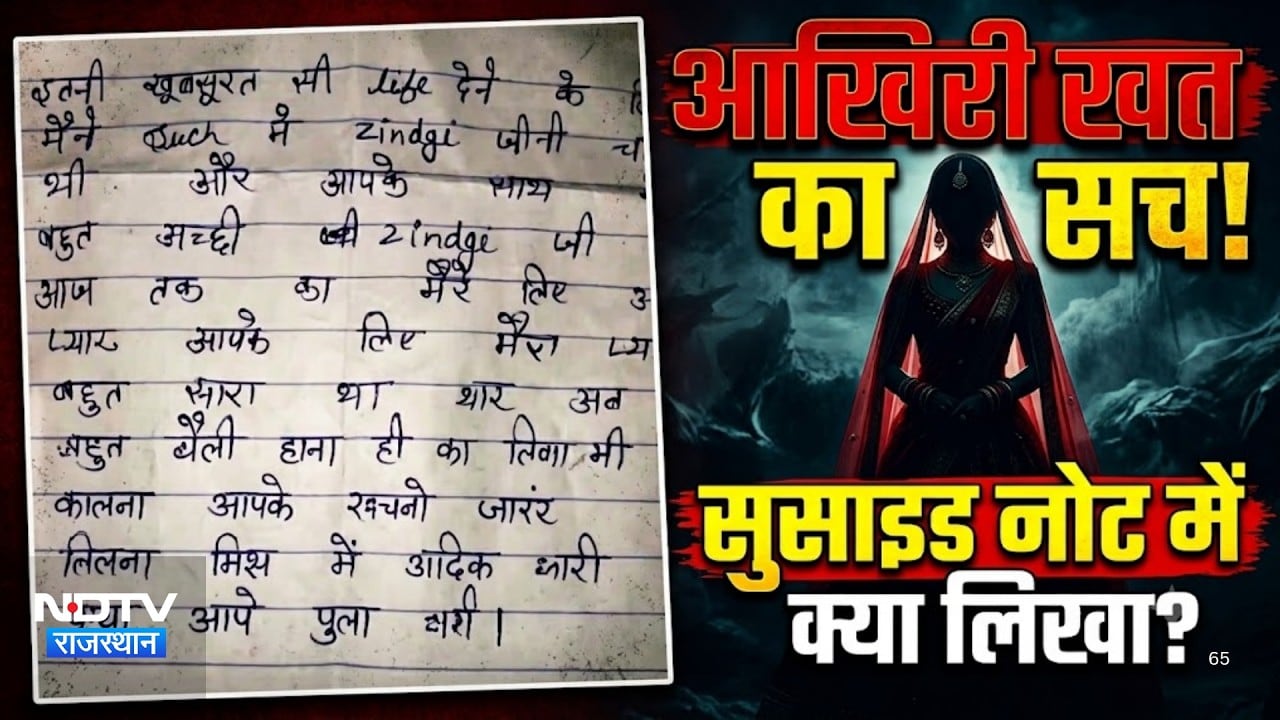 इतनी खूबसूरत सी life देने के
मैने Such मे zindgi जीनी
थी और आपके साथ
बहुत अच्छी zindgi जी
आज तक का मेरे लिए
प्यार आपके लिए मैरा
बहुत सारा था थार अब
बहुत बैली हाना ही का लिगा भी
कालना आपके जारंर
तिलना मिथ में आदिक धारी
आपे पुला
आखिरी खत
का सच!
सुसाइड नोट में
क्या लिखा?
NDTV
राजस्थान
65